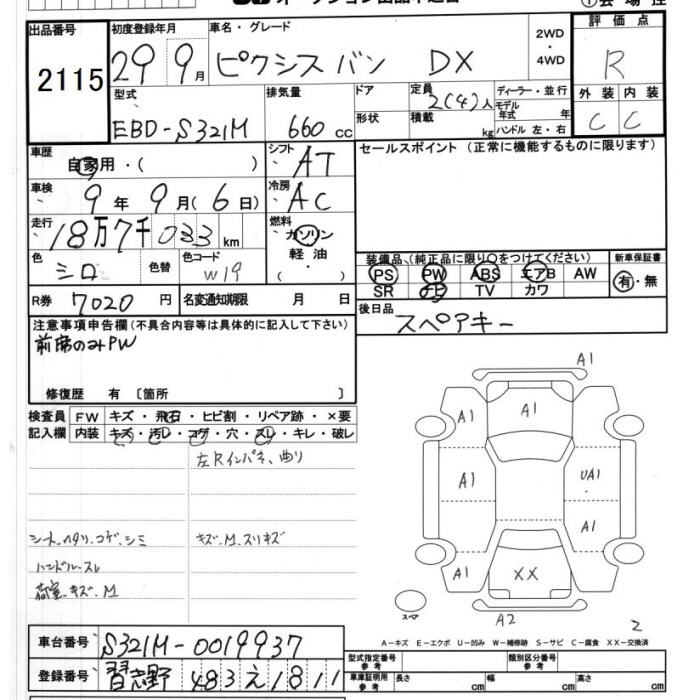 出品番号 初度登録年月 車名・グレード 評価点
2115 29 9月 ピクシスバン DX 2WD・4WD R
型式 排気量 ドア 定員 ディーラー・並行 外装 内装
EBD-S321M 660cc 形状 2(4)人 積載 kg モデル年式 年 ハンドル 左・右 C C
車歴 シフト セールスポイント (正常に機能するものに限ります)
自家用・( ) AT
車検 冷房
9年9月(6日) AC
走行 燃料
18万7千033km ガソリン
色 色替 色コード 軽油
シロ W19 ( ・ )
装備品(純正品に限り○をつけてください) 新車保証書
PS PW ABS エアB AW 有・無
SR ナビ TV カワ
R券 7020円 名変通知期限 月 日
後日品
スペアキー
注意事項申告欄(不具合内容等は具体的に記入して下さい)
前席のみPW
修復歴 有 〔箇所 〕
検査員 FW キズ・飛石・ヒビ割・リペア跡・×要
記入欄 内装 キズ・汚レ・コゲ・穴・スレ・キレ・破レ
左Rインパネ、曲り
シート、ヘタリ、コゲ、シミ キズ、M、スリキズ
ハンドル、スレ
荷室、キズ、M
A1
A1 A1
A1 UA1
A1
A1 XX
スペア A2
2
A-キズ E-エクボ U-凹み W-補修跡 S-サビ C-腐食 XX-交換済
車台番号 S321M-0019937
型式指定番号 類別区分番号
参考 参考
登録番号 習志野 483 え 1811
車庫証明用 長さ cm 幅 cm 高さ cm
参考